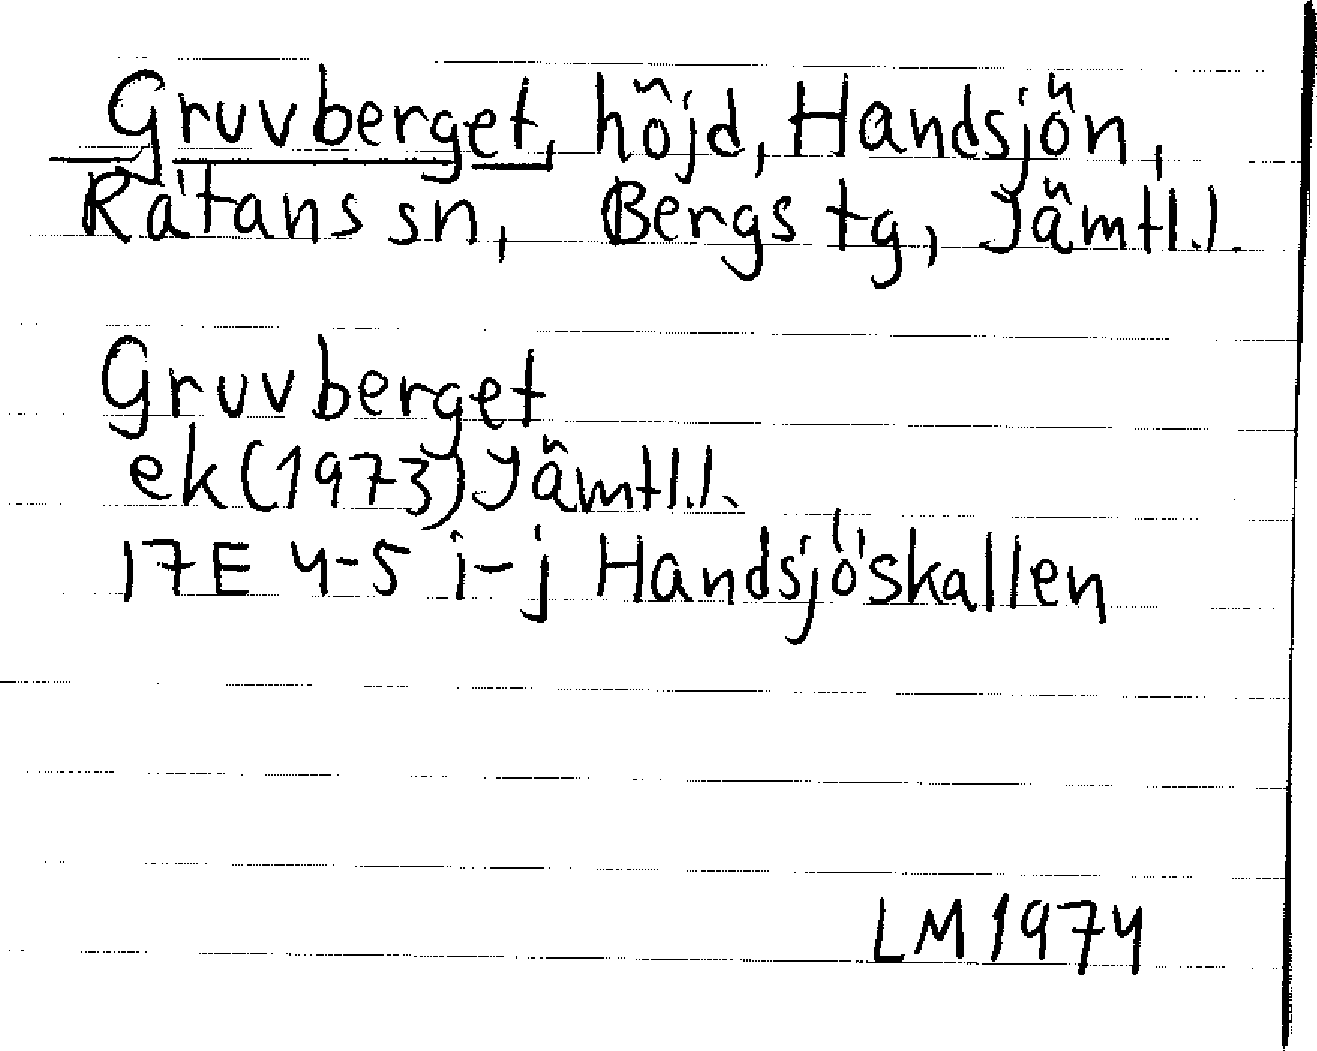 Gruvberget, höjd, Handsjön,
Rätans sn, Bergs tg, Jämtl.l.
Gruvberget
ek(1973)Jämtl.l.
17E 4-5 i-j Handsjöskallen
LM 1974